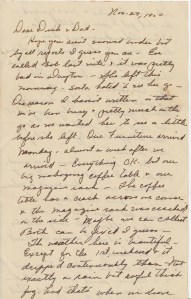 Nov. 27, 19
Dear Dick & Dad -
Hope you aren't snowed under but
by all reports I guess you are -
called last nite & it was pretty
bad in Dayton - left this
morning - sure hated to see her go -
reason I haven't written - that
we were busy & pretty much on the
go as we wanted her to see a little
before she left. Our furniture arrived
Monday - almost a week after we
arrived - Everything OK but our
big mahogany coffee table & our
magazine rack - The coffee
table has a crack across one corner
& the magazine rack was cracked
on the side - Maybe we can collect
Both can be fixed I guess -
The weather here is beautiful -
Except for the 1st weekend it
dripped continuously then - Not
exactly a rain but awful thick
fog and that's when we drove